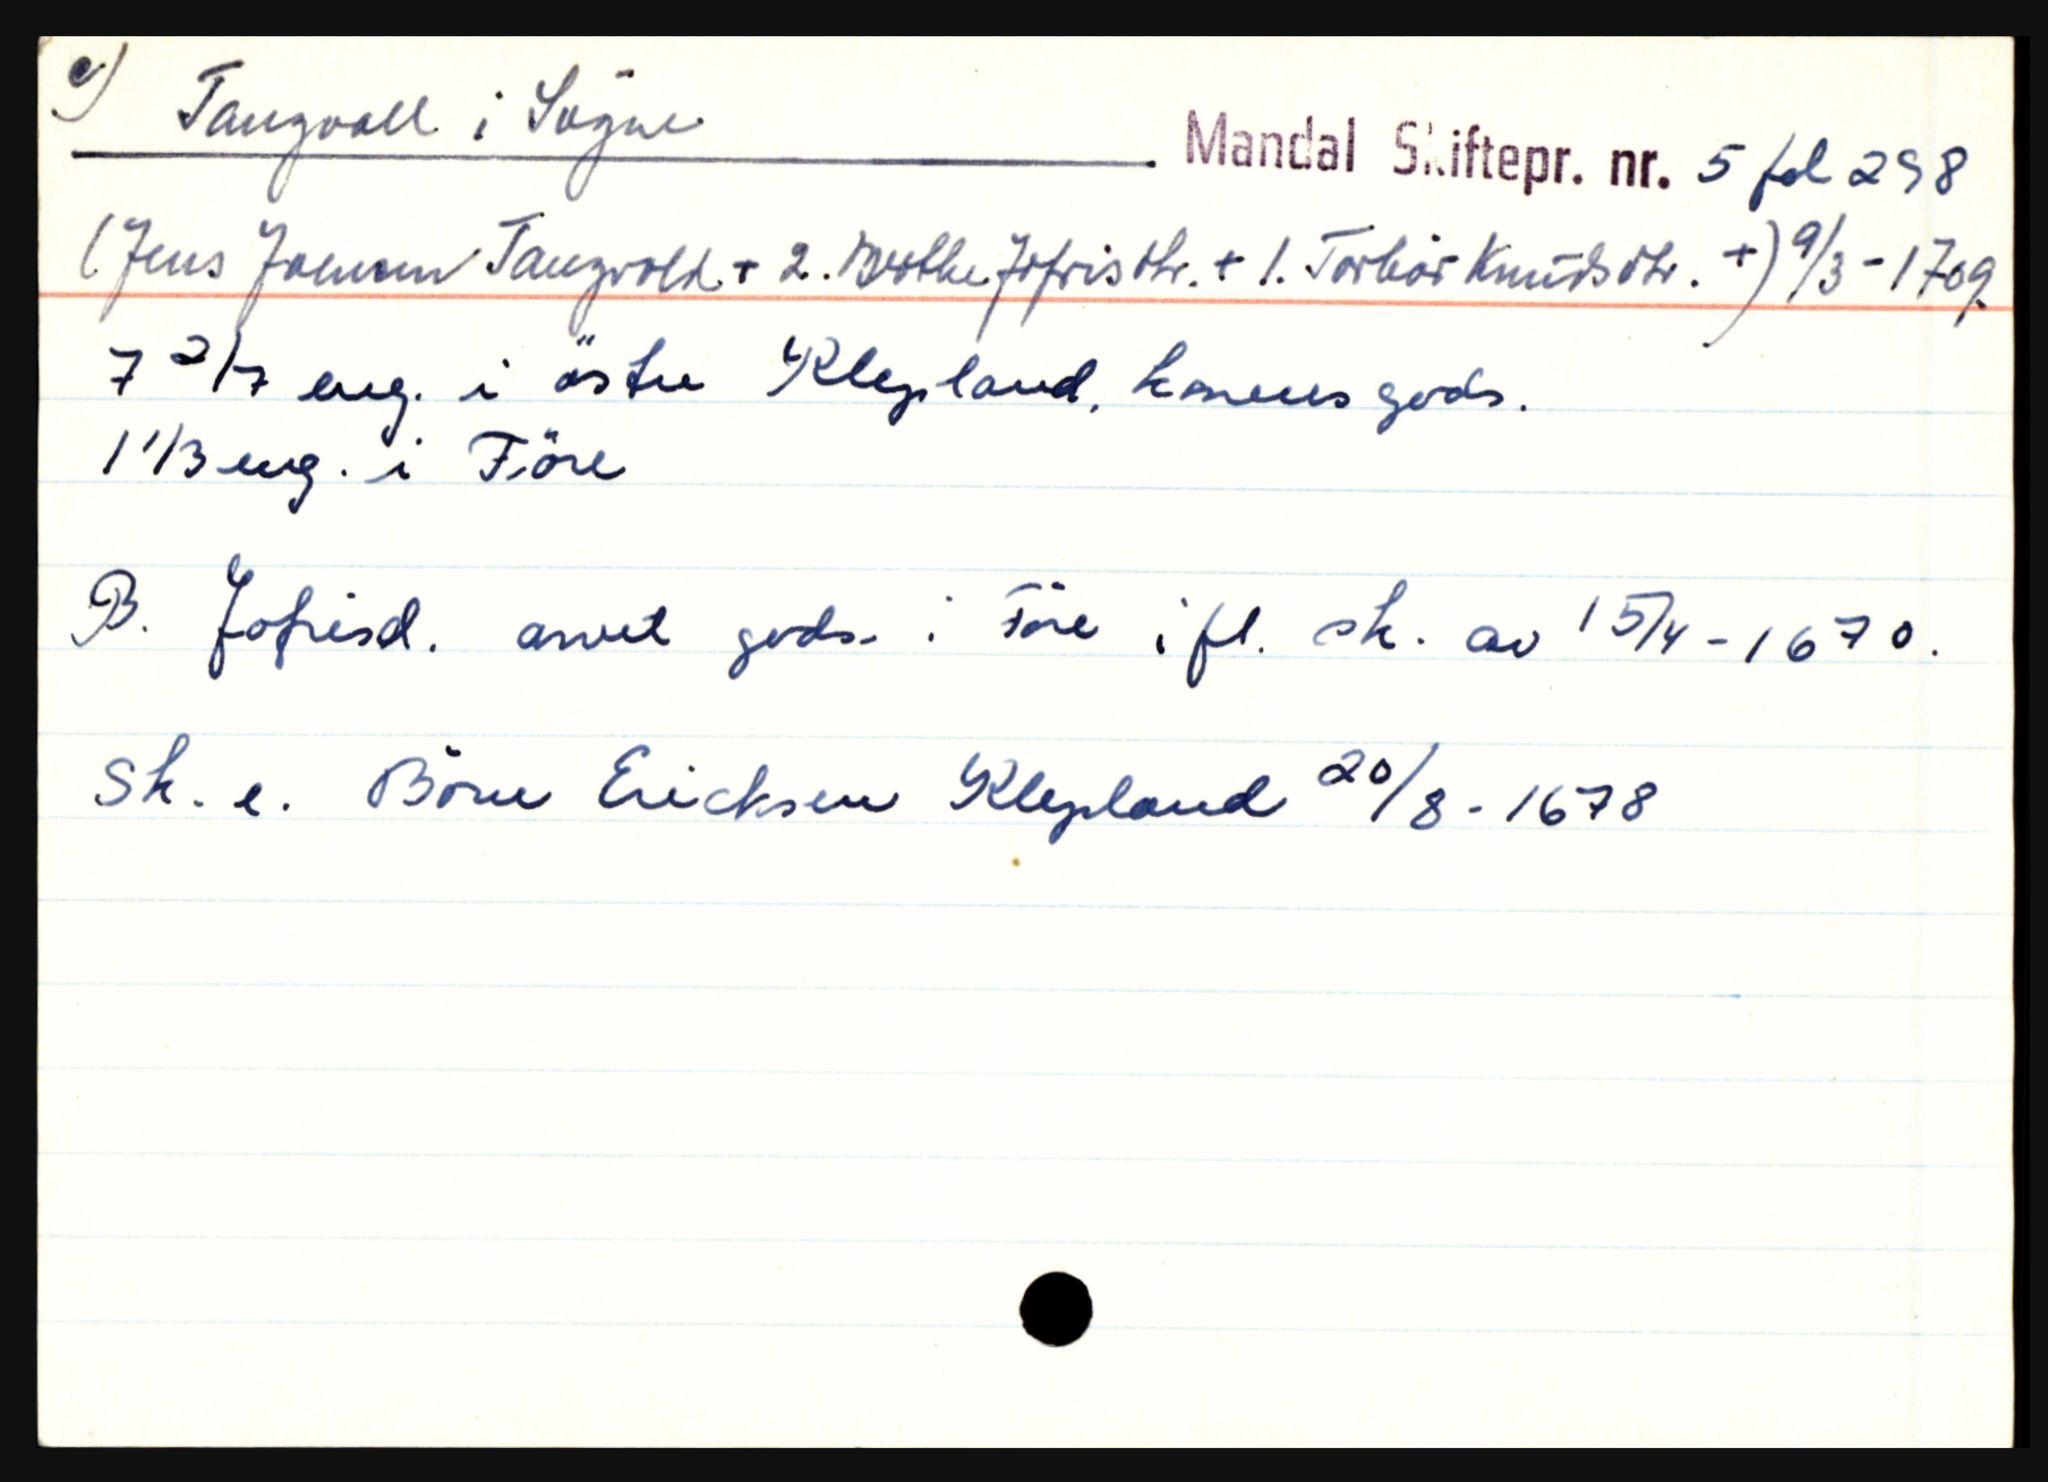 e) Tangvall i Sögne
Mandal Skiftepr. nr. 5 fol 298
(Jens Jensen Tangvold + 2. Berthe Jofrisdtr. + 1. Torbör Knudsdtr. +) 9/3 - 1709
7 2/7 eng. i östre Klepland, konens gods.
1 1/3 eng. i Töre
B. Jofrisd. arvet gods i Töre ifl. sk. av 15/4 - 1670.
Sk. e. Börne Ericksen Klepland 20/8 - 1678